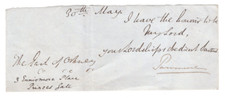 30th May
I have the honour to be
My Lord,
your Lordship's obedient Servant
The Earl of
3 Ennismore Place
Princes Gate